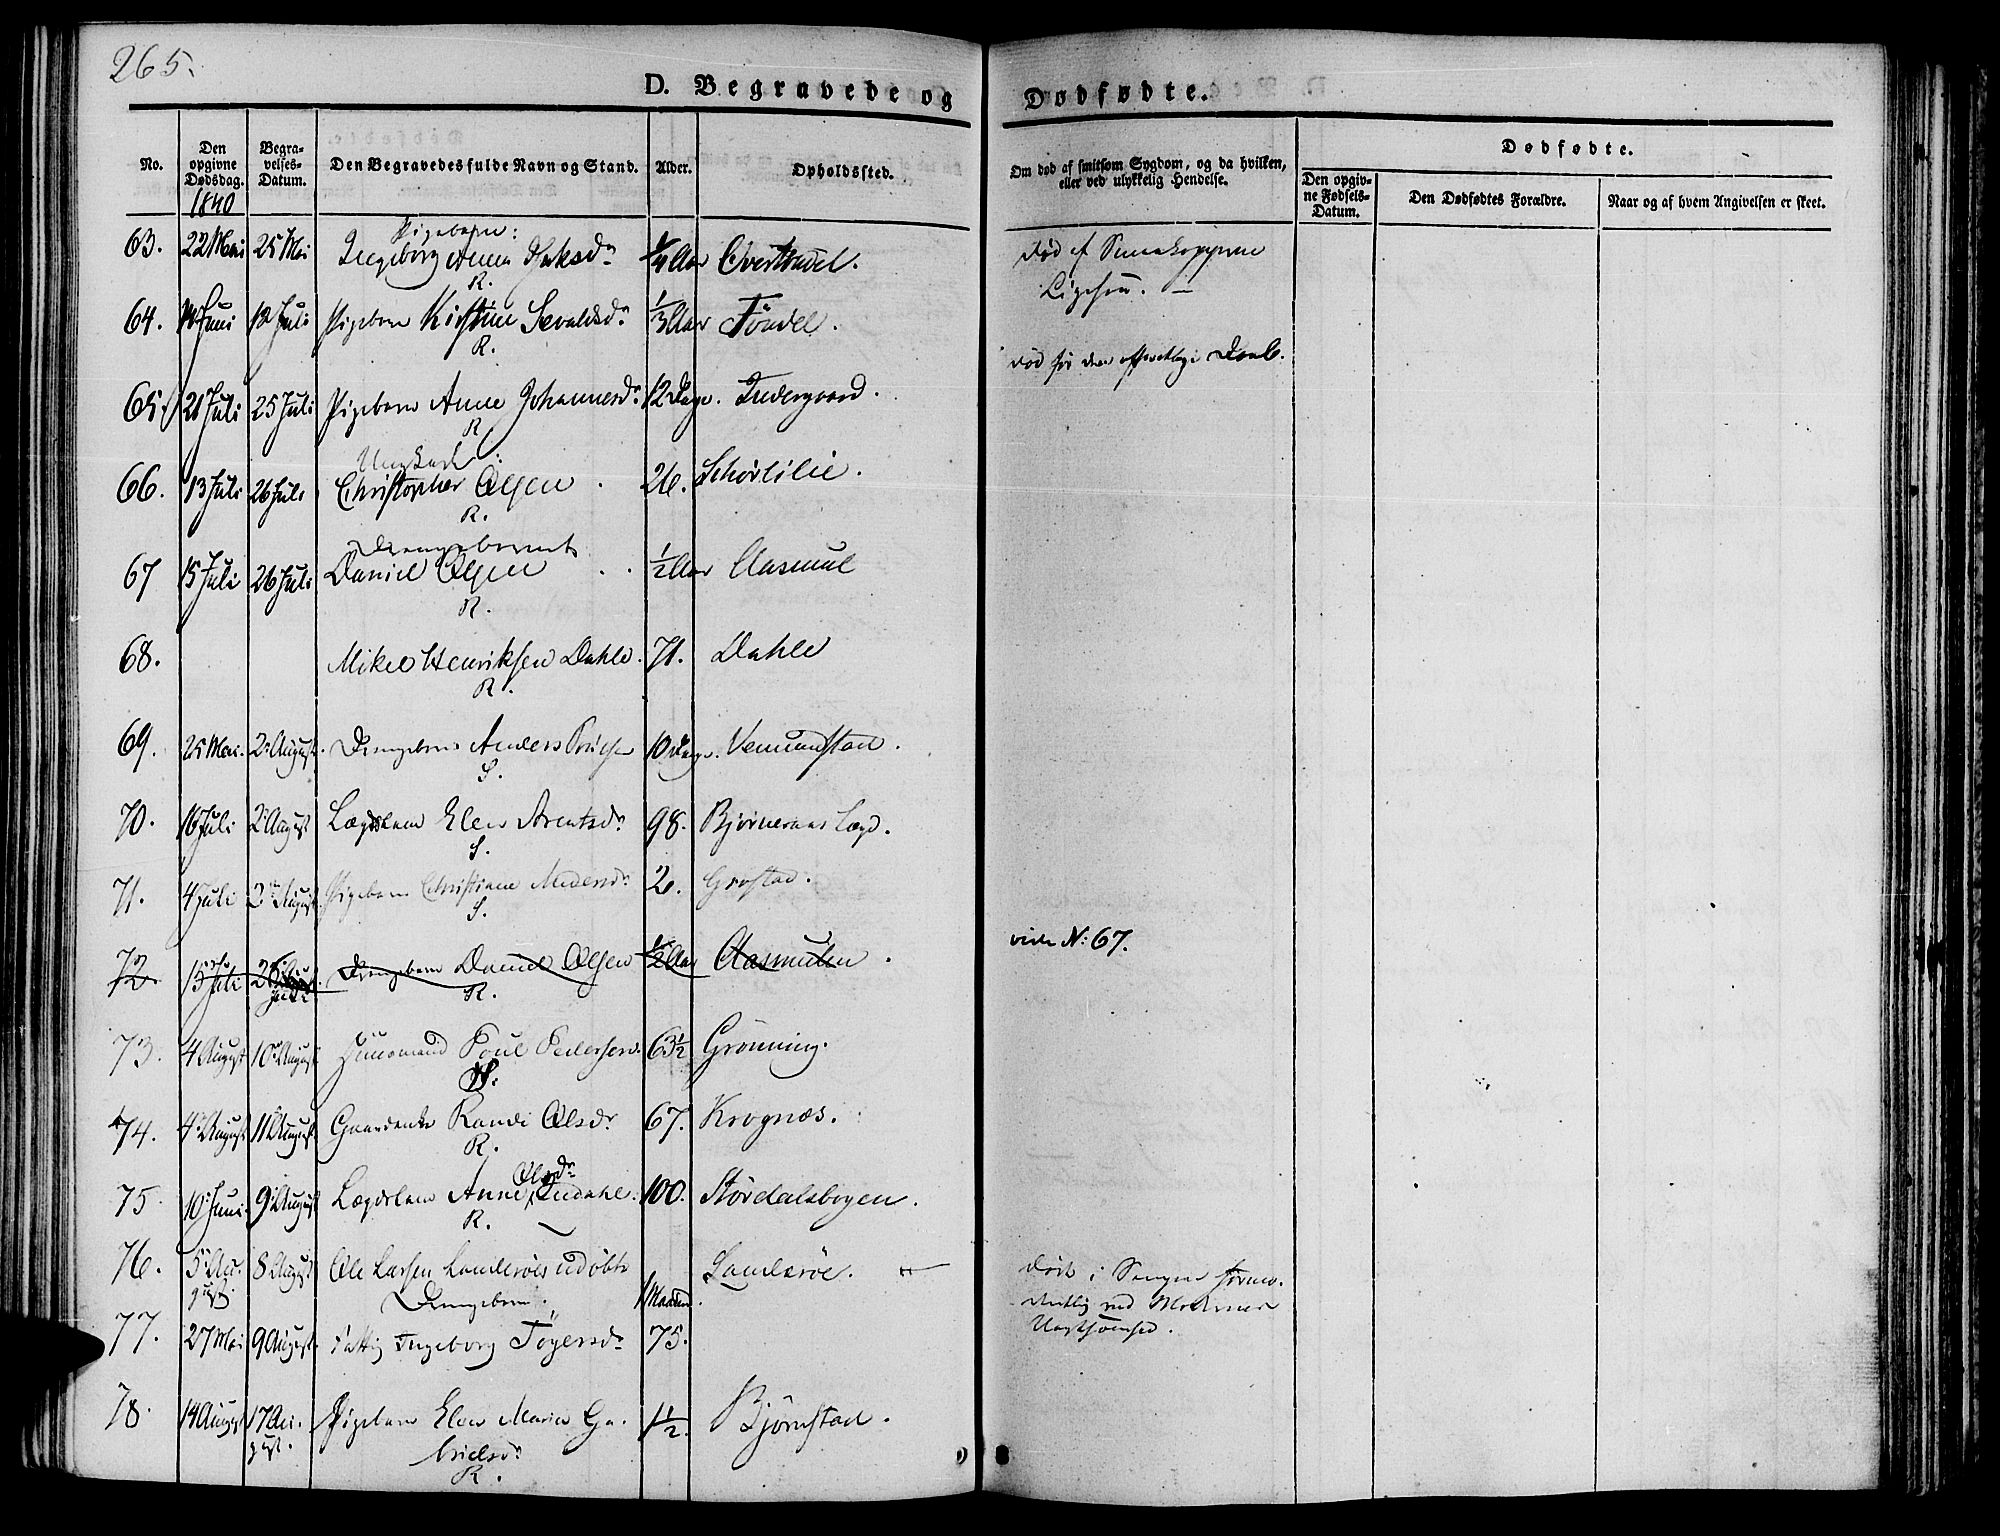 265.
D. Begravede og Dødfødte.
No.
Den opgivne Dødsdag.
1840
Begravelses-Datum.
Den Begravedes fulde Navn og Stand.
Alder.
Opholdssted.
Om død af smitsom Sygdom, og da hvilken,
eller ved ulykkelig Hendelse.
Dødfødte.
Den opgivne Fødsels-Datum.
Den Dødfødtes Forældre.
Naar og af hvem Angivelsen er skeet.
Pigebarn:
63. 22 Mai 25 Mai Ingeborg Anna 1/4 Aar
R.
Død af
Ligesaa. —
64. Juni 12 Juli Pigebarn Kirstine Sevaldsdr 1/3 Aar Töndel.
R.
død før den Daab.
65. 21 Juli 25 Juli Pigebarn Anne Johannesdr 12 Dage. Indergaard.
R
Ungkarl:
66. 13 Juli 26 Juli Christopher Olsen 26. Schørlilie.
R.
Drengebarnet
67 15 Juli 26 Juli Daniel Olsen 1/2 Aar Aasmul
R.
68. Mikel Henriksen Dahle. 71. Dahle
R.
69. 25 Mai. 2 August. Drengebarn Anders 10 Dage. Vemundstad.
S.
70. 16 Juli 2 August Lægdslem Elen Arentsdr 98. Bjørneraas Lægd.
S.
71. 4 Juli 2 August Pigebarn Christiane 2. Grostad.
S.
72 15 Juli 26 Juli Drengebarn Daniel Olsen 1/2 Aar Aasmulen.
R.
vide N: 67.
73. 4 August 10 August Huusmand Poul Pedersen. 63 1/2 Grönning.
74. 4 August 11 August Gaardenke Randi Olsdr 67. Krognæs.
R.
Olsdr
75. 10 Juni. 9 August Lægdslem Anne Indahl. 100. Stördalsbogen.
R.
76. 5 August. 8 August Ole Larsen Landerøes udøbte Landerøe.
Drengebarn. 1 Maaned.
Död i Sengen formo.
dentlig ved Moderens
Uagtsomhed.
77. 27 Mai 9 August. Fattig Ingeborg Töyersdr 75.
78. 14 August 17 August. Pigebarn Elen Maria Gabrielsdr 1 1/2. Björnstad.
R.